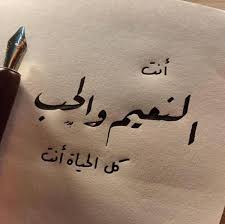 أنت
النعيم والحب
كل الحياة أنت